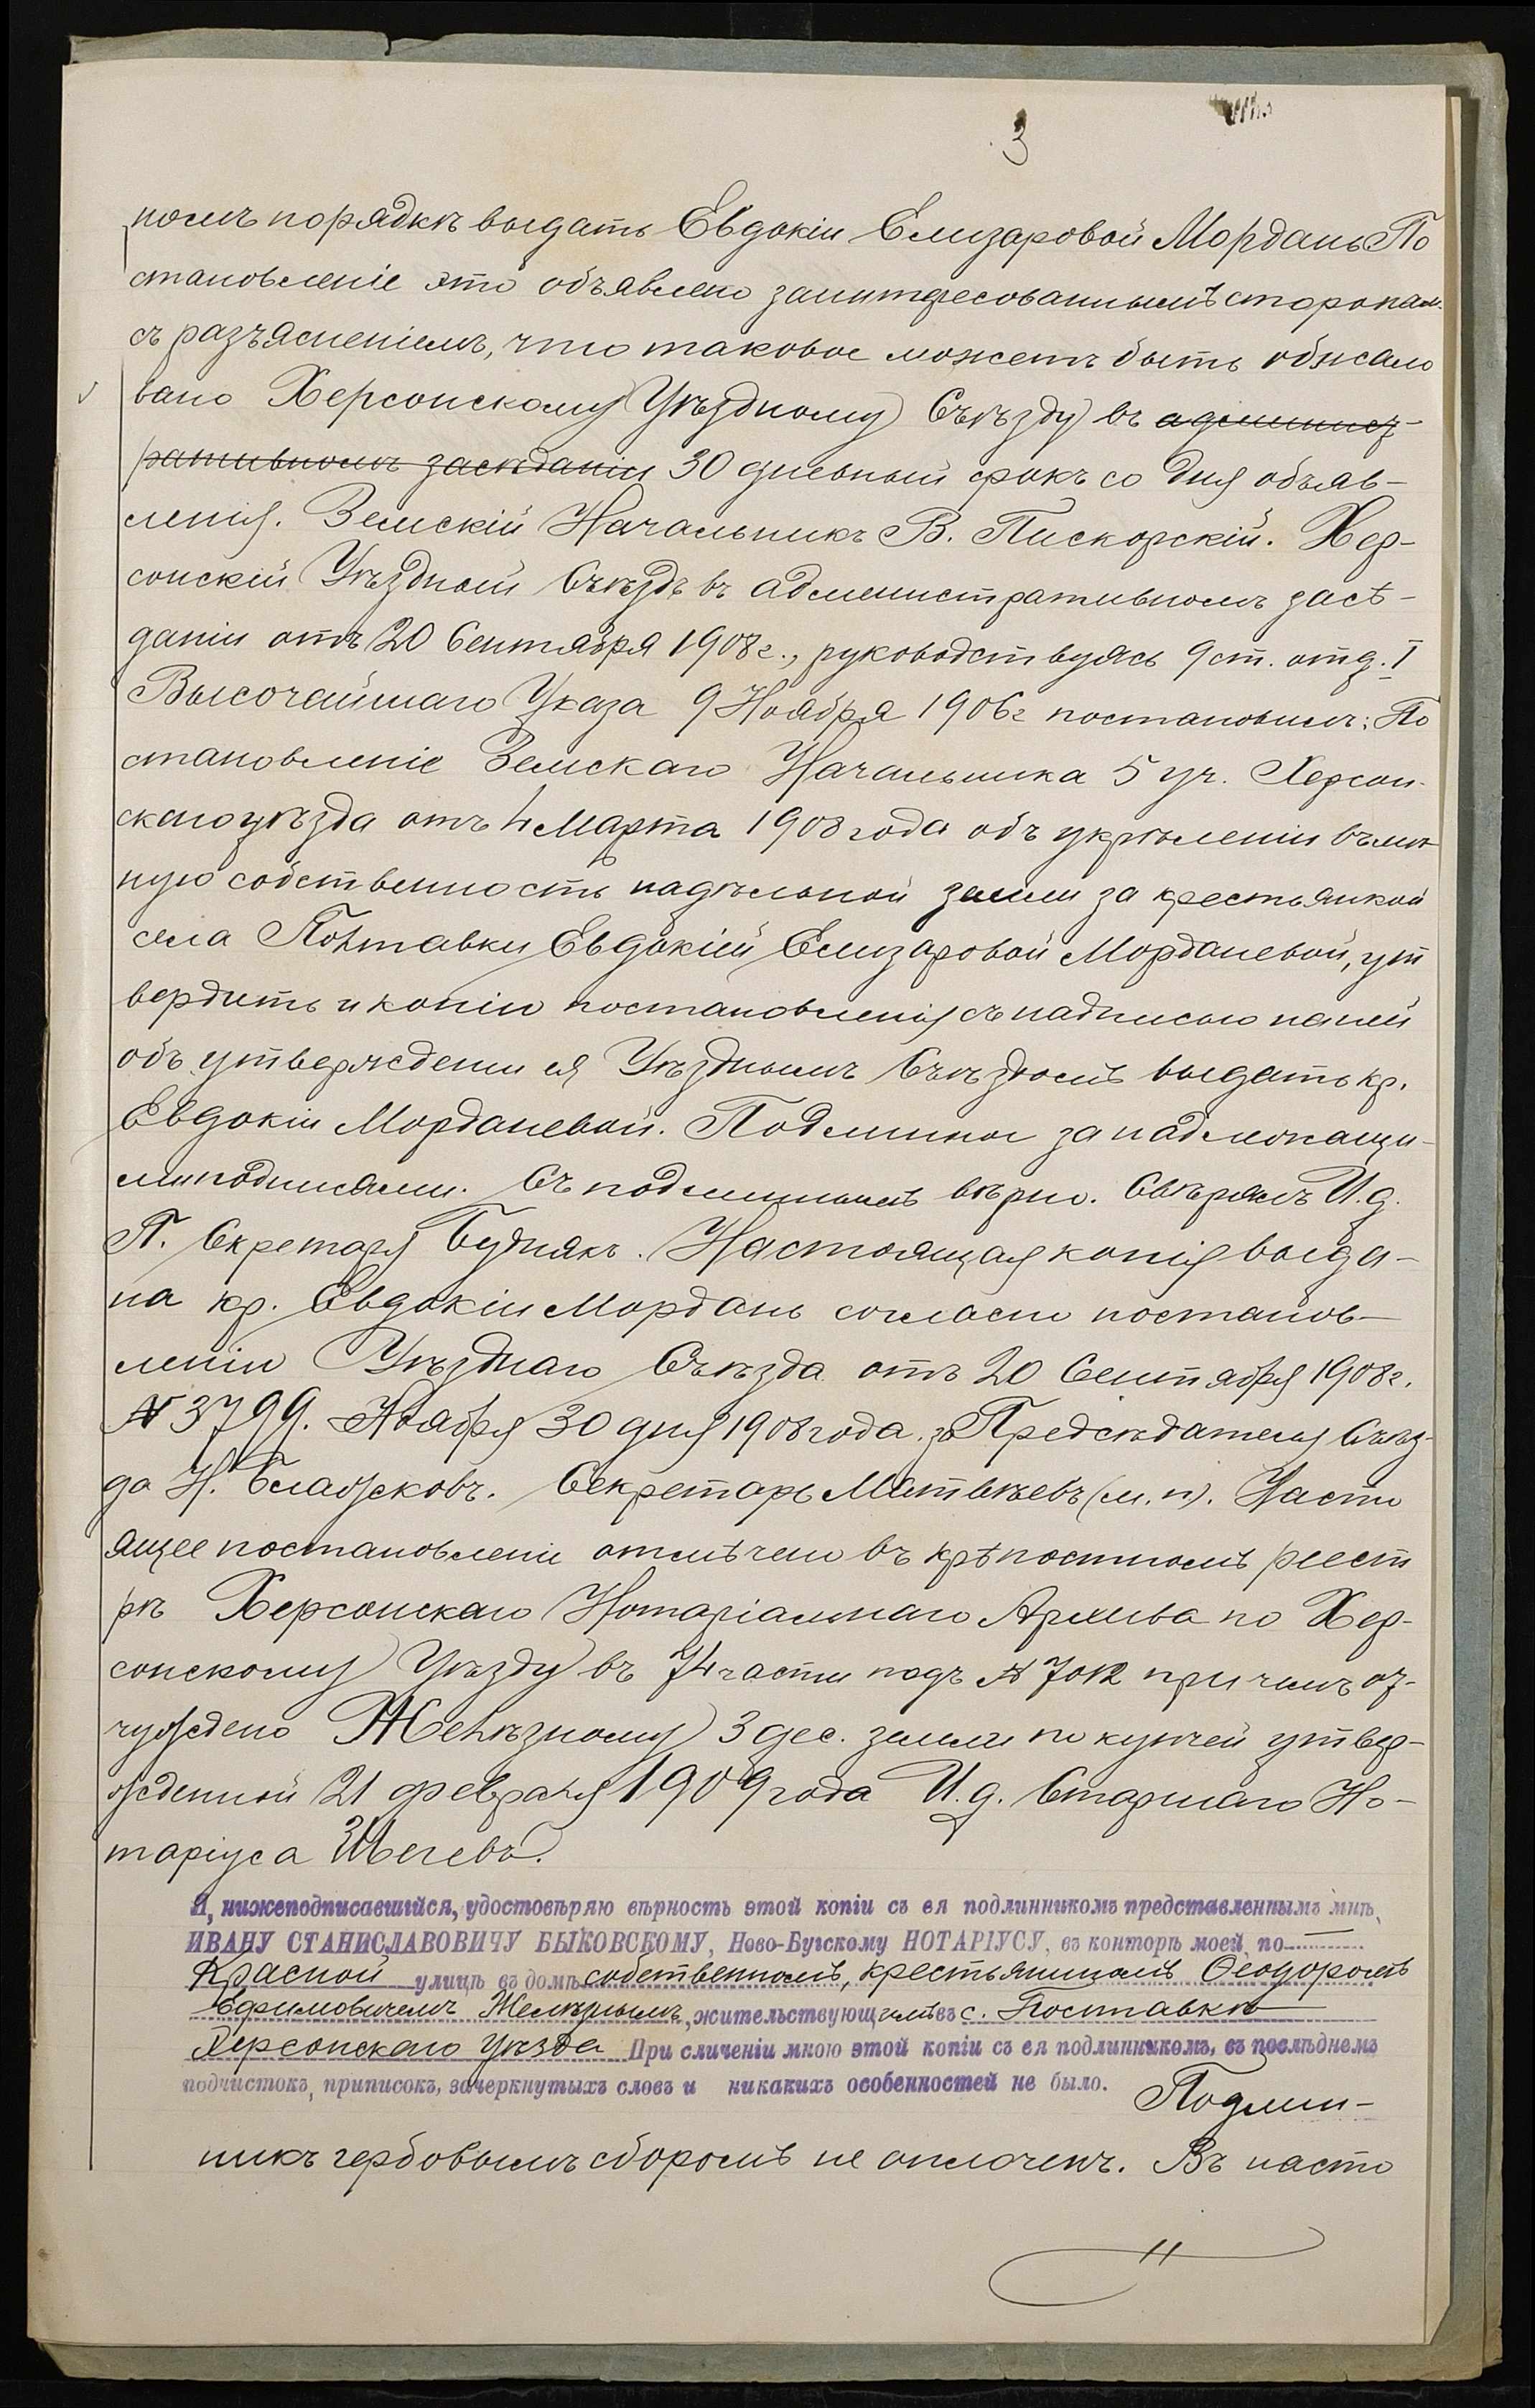 3
номъ порядкѣ выдать Евдокіи Елизаровой Мордань По
становленіе это объявлено заинтересованнымъ сторонам.
съ разъясненіемъ, что таковое можетъ быть обжало
вано Херсонскому Уѣздному Съѣзду въ админист-
ративномъ засѣданіи 30 дневный срокъ со дня объяв-
ленія. Земскій Начальникъ В. Пискорскій. Хер-
сонскій Уѣздный Съѣздъ въ административномъ засѣ-
даніи отъ 20 Сентября 1908 г., руководствуясь 9 ст. отд. I
Высочайшаго Указа 9 Ноября 1906 г постановилъ: По
становленіе Земскаго Начальника 5 уч. Херсон-
скаго уѣзда отъ 4 Марта 1908 года объ укрѣпленіи въ лич
ную собственность надѣльной земли за крестьянкой
села Полтавки Евдокіей Елизаровой Морданевой, ут
вердить и копію постановленія съ надписью на ней
объ утвержденіи ея Уѣзднымъ Съѣздомъ выдать кр.
Евдокіи Морданевой. Подлинное за надлежащи-
ми подписями. Съ подлиннымъ вѣрно. Свѣрялъ И. д.
П. Секретаря Будякъ. Настоящая копія выда-
на кр. Евдокіи Мордань согласно постанов-
ленію Уѣзднаго Съѣзда отъ 20 Сентября 1908 г.
№ 3799. Ноября 30 дня 1908 года. за Предсѣдателя Съѣз-
да Н. Сектретарь Матвѣевъ (м. п.). Насто
ящее постановленіе отмѣчено въ крѣпостномъ реест
рѣ Херсонскаго Нотаріальнаго Архива по Хер-
сонскому Уѣзду въ 74 части подъ № 7012 при чемъ от-
чуждено Желѣзному 3 дес. земли по купчей утвер-
жденной 21 февраля 1909 года И. д. Старшаго Но-
таріуса
Я, нижеподписавшійся, удостовѣряю вѣрность этой копіи съ ея подлинникомъ представленнымъ мнѣ,
ИВАНУ СТАНИСЛАВОВИЧУ БЫКОВСКОМУ, Ново-Бугскому НОТАРІУСУ, въ конторѣ моей, по
Красной улицѣ въ домѣ собственномъ, крестьяниномъ Ѳеодоромъ
Ефимовичемъ Желѣзнымъ, жительствующимъ въ с. Полтавкѣ
Херсонскаго уѣзда При сличеніи мною этой копіи съ ея подлинникомъ, въ послѣднемъ
подчистокъ, приписокъ, зачеркнутыхъ словъ и никакихъ особенностей не было. Подлин-
никъ гербовымъ сборомъ не оплоченъ. Въ насто